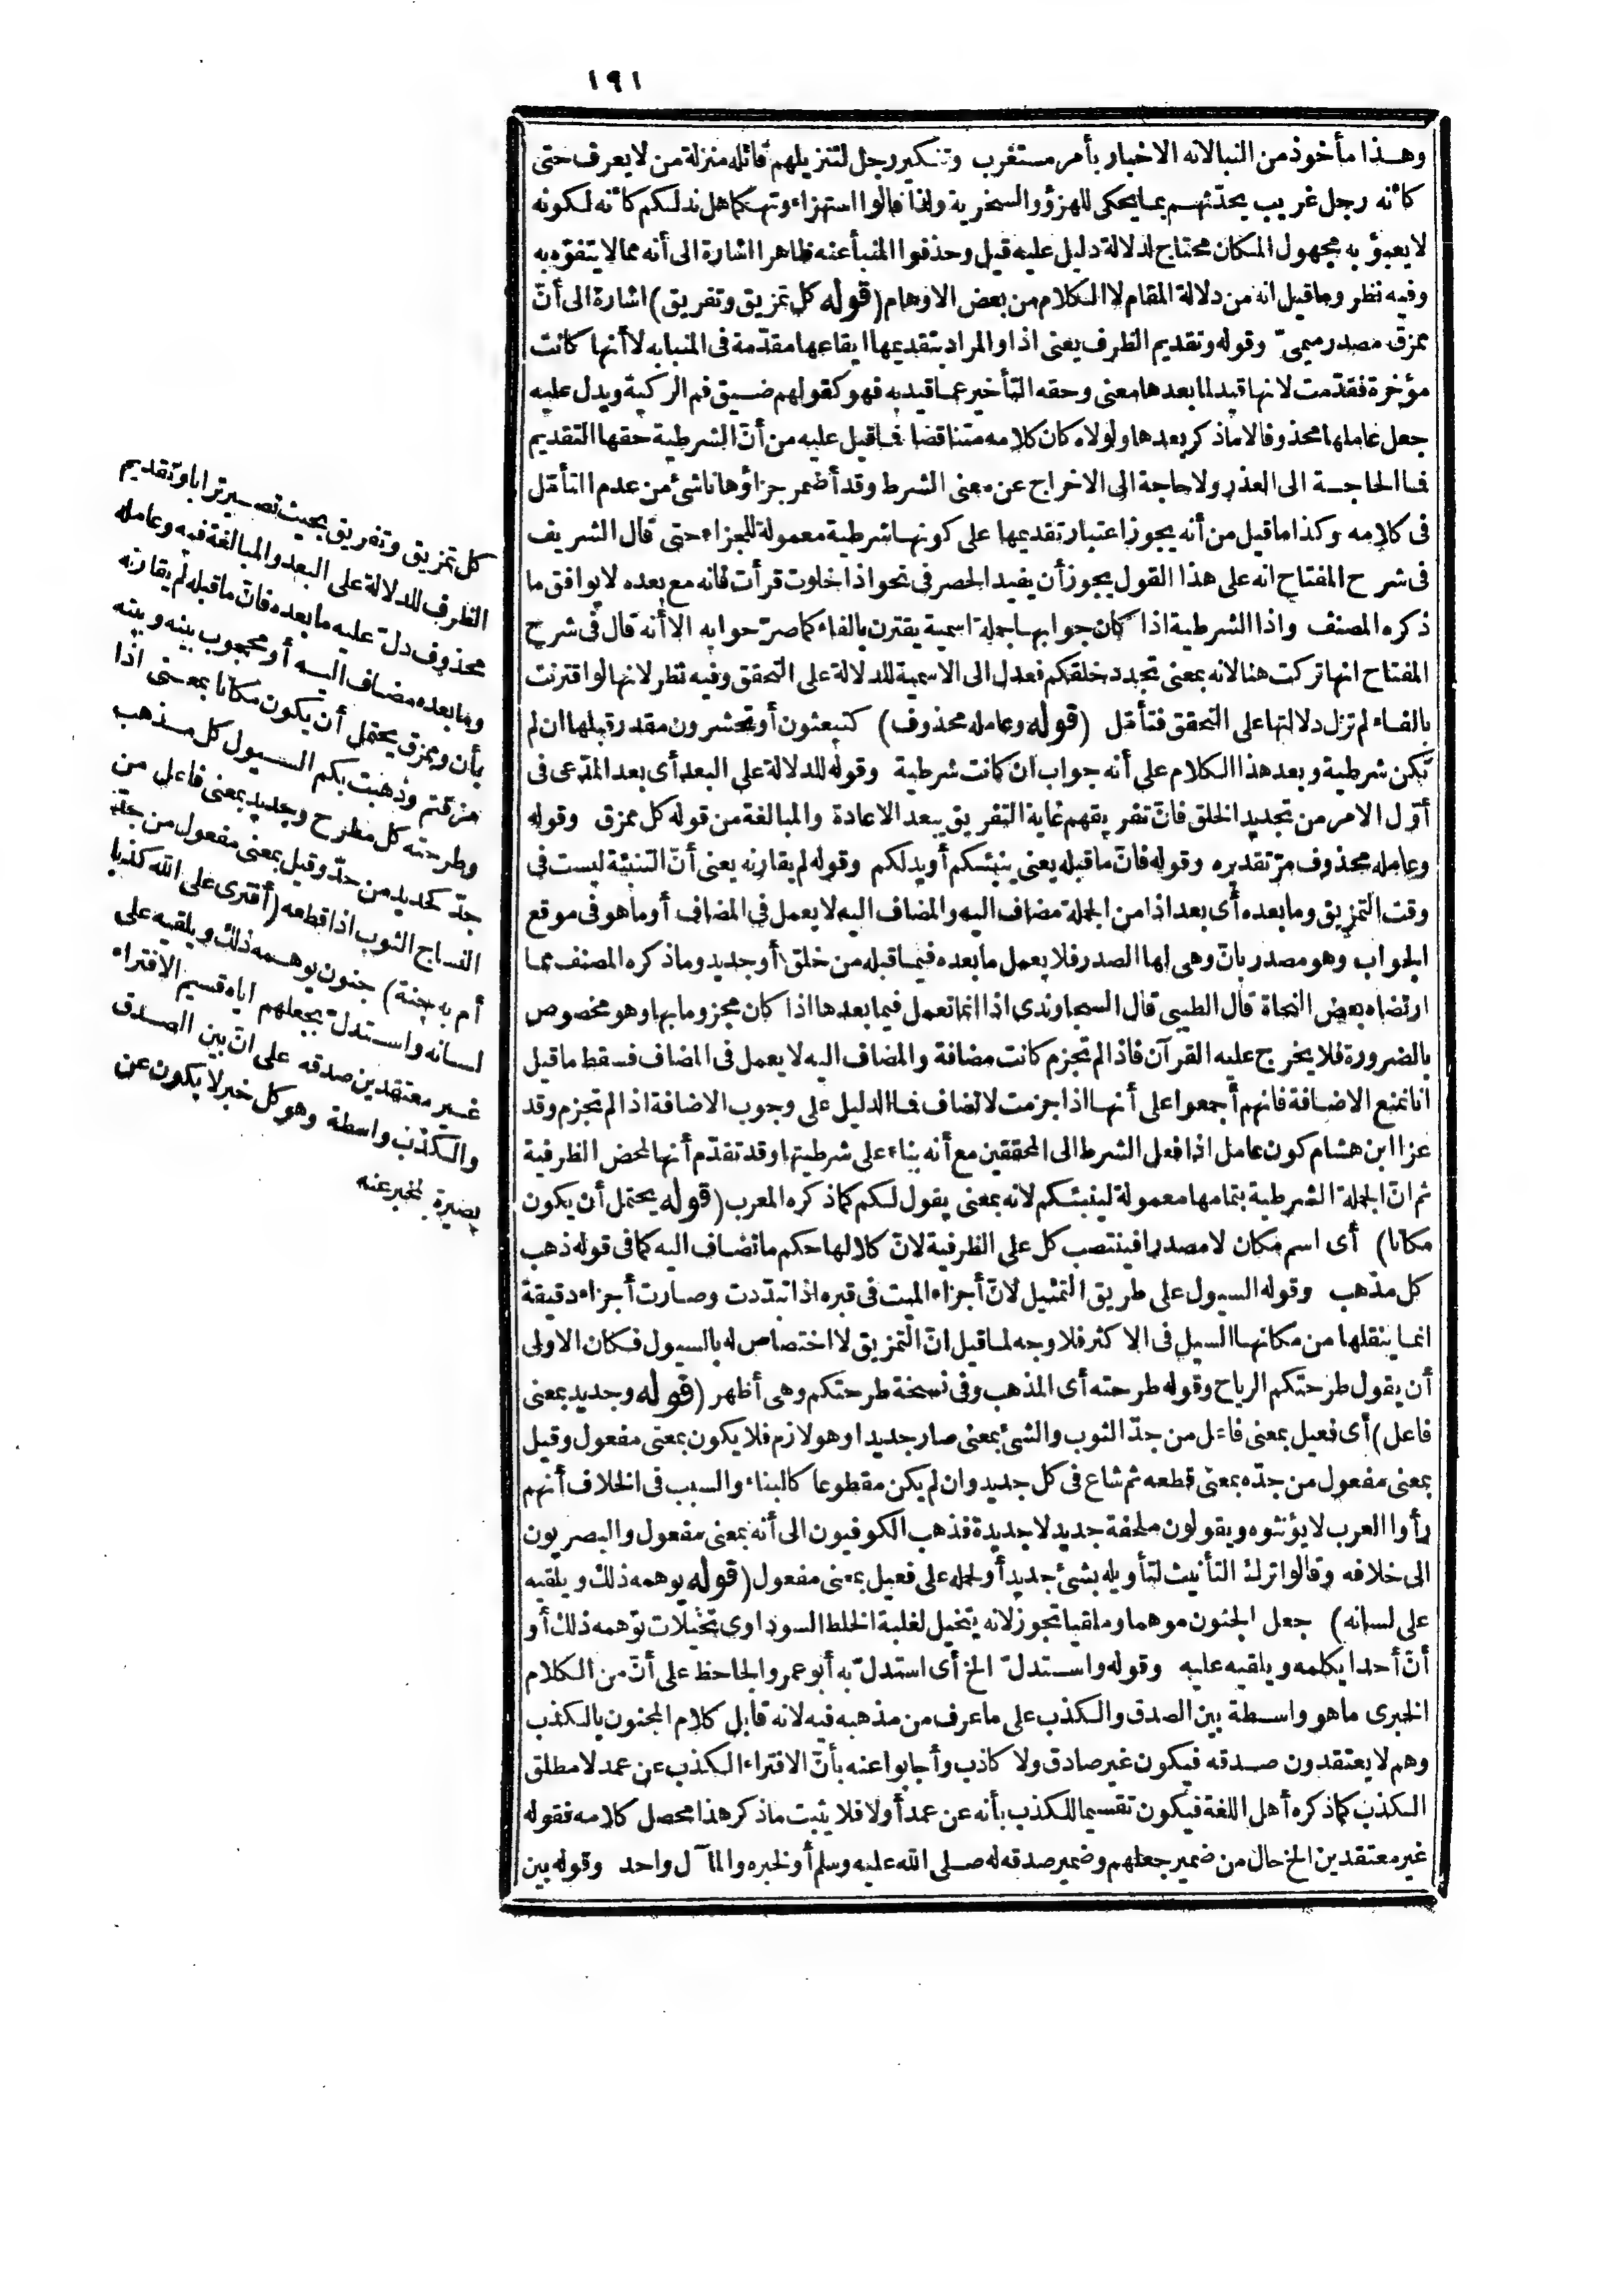 ١٩١
وهذا مأخوذ من النبا لانه الاخبار بأمر مستغرب وتنكير رجل لتنزيلهم قائله منزلة من لا يعرف حتى
كأنه رجل غريب يحدّثهم بما يحكى للهزؤ والسخرية ولذا قالوا استهزاء وتهكما هل ندلكم كأنه لكونه
لا يعبؤ به مجهول المكان محتاج لدلالة دليل عليه قيل وحذفوا المنبأ عنه ظاهرا اشارة الى أنه مما لا يتفوّه به
وفيه نظر وما قيل انه من دلالة المقام لا الكلام من بعض الاوهام (قوله كل تمزيق وتفريق) اشارة الى أنّ
ممزق مصدر ميمىّ وقوله وتقديم الظرف يعنى اذا والمراد بتقديمها ايقاعها مقدّمة فى المنبا به لا أنها كانت
مؤخرة فقدّمت لانها قيد لما بعدها معنى وحقه التأخير عما قيد به فهو كقولهم ضيق فم الركية ويدل عليه
جعل عاملها محذوفا لا ما ذكر بعدها ولولاه كان كلامه متناقضا فما قيل عليه من أنّ الشرطية حقها التقديم
فما الحاجة الى العذر ولا حاجة الى الاخراج عن معنى الشرط وقد أضمر جزاؤها ناشئ من عدم التأمّل
فى كلامه وكذا ما قيل من أنه يجوز اعتبار تقديمها على كونها شرطية معمولة للجزاء حتى قال الشريف
فى شرح المفتاح انه على هذا القول يجوز أن يفيد الحصر فى نحو اذا خلوت قرأت فانه مع بعده لا يوافق ما
ذكره المصنف واذا الشرطية اذا كان جوابها جملة اسمية يقترن بالفاء كما صرّحوا به الا أنه قال فى شرح
المفتاح انها تركت هنا لانه بمعنى تجدد خلقكم فعدل الى الاسمية للدلالة على التحقق وفيه نظر لانها لو اقترنت
بالفاء لم تزل دلالتها على التحقق فتأمّل (قوله وعامله محذوف) كتبعثون أو تحشرون مقدر قبلها ان لم
تكن شرطية وبعد هذا الكلام على أنه جواب ان كانت شرطية وقوله للدلالة على البعد أى بعد المدّعى فى
أوّل الامر من تجديد الخلق فانّ تفريقهم غاية التفريق يبعد الاعادة والمبالغة من قوله كل ممزق وقوله
وعامله محذوف مرّ تقديره وقوله فانّ ما قبله يعنى ينبئكم أو يدلكم وقوله لم يقارنه يعنى أنّ التنبئة ليست فى
وقت التمزيق وما بعده أى بعد اذا من الجملة مضاف اليه والمضاف اليه لا يعمل فى المضاف أو ما هو فى موقع
الجواب وهو مصدر بانّ وهى لها الصدر فلا يعمل ما بعده فيما قبله من خلق أو جديد وما ذكره المصنف مما
ارتضاه بعض النحاة قال الطيبى قال السجاوندى اذا انما تعمل فيما بعدها اذا كان مجزوما بها وهو مخصوص
بالضرورة فلا يخرج عليه القرآن فاذا لم تجزم كانت مضافة والمضاف اليه لا يعمل فى المضاف فسقط ما قيل
انا نمنع الاضافة فانهم أجمعوا على أنها اذا جزمت لا تضاف فما الدليل على وجوب الاضافة اذا لم تجزم وقد
عزا ابن هشام كون عامل اذا فعل الشرط الى المحققين مع أنه بناء على شرطيتها وقد تقدّم أنها لمحض الظرفية
ثم انّ الجملة الشرطية بتمامها معمولة لينبئكم لانه بمعنى يقول لكم كما ذكره المعرب (قوله يحتمل أن يكون
مكانا) أى اسم مكان لا مصدرا فينتصب كل على الظرفية لانّ كلا لها حكم ما تضاف اليه كما فى قوله ذهب
كل مذهب وقوله السيول على طريق التمثيل لانّ أجزاء الميت فى قبره اذا تبدّدت وصارت أجزاء دقيقة
انما ينقلها من مكانها السيل فى الاكثر فلا وجه لما قيل انّ التمزيق لا اختصاص له بالسيول فكان الاولى
أن يقول طرحتكم الرياح وقوله طرحته أى المذهب وفى نسخة طرحتكم وهى أظهر (قوله وجديد بمعنى
فاعل) أى فعيل بمعنى فاعل من جدّ الثوب والشئ بمعنى صار جديدا وهو لازم فلا يكون بمعنى مفعول وقيل
بمعنى مفعول من جدّه بمعنى قطعه ثم شاع فى كل جديد وان لم يكن مقطوعا كالبناء والسبب فى الخلاف أنهم
رأوا العرب لا يؤنثوه ويقولون ملحفة جديد لا جديدة فذهب الكوفيون الى أنه بمعنى مفعول والبصريون
الى خلافه وقالوا ترك التأنيث لتأويله بشئ جديد أو لحمله على فعيل بمعنى مفعول (قوله يوهمه ذلك ويلقيه
على لسانه) جعل الجنون موهما وملقيا تجوز لانه يتخيل لغلبة الخلط السوداوى تخيلات توهمه ذلك أو
أنّ أحدا يكلمه ويلقيه عليه وقوله واستدلّ الخ أى استدلّ به أبو عمرو الجاحظ على أنّ من الكلام
الخبرى ما هو واسطة بين الصدق والكذب على ما عرف من مذهبه فيه لانه قابل كلام المجنون بالكذب
وهم لا يعتقدون صدقه فيكون غير صادق ولا كاذب وأجابوا عنه بأنّ الافتراء الكذب عن عمد لا مطلق
الكذب كما ذكره أهل اللغة فيكون تقسيما للكذب بأنه عن عمد أو لا فلا يثبت ما ذكر هذا محصل كلامه فقوله
غير معتقدين الخ حال من ضمير جعلهم وضمير صدقه له صلى الله عليه وسلم أو لخبره والمآل واحد وقوله بين
كل تمزيق وتفريق بحيث تصير ترابا وتقديم
الظرف للدلالة على البعد والمبالغة فيه وعامله
محذوف دلّ عليه ما بعده فانّ ما قبله لم يقارنه
وما بعده مضاف اليه أو محجوب بينه وبينه
بأن وممزق يحتمل أن يكون مكانا بمعنى اذا
مزقتم وذهبت بكم السيول كل مذهب
وطرحته كل مطرح وجديد بمعنى فاعل من
جدّ كحديد من حدّ وقيل بمعنى مفعول من جدّ
النساج الثوب اذا قطعه (أفترى على الله كذبا
أم به جنة) جنون يوهمه ذلك ويلقيه على
لسانه واستدلّ بجعلهم اياه قسيم الافتراء
غير معتقدين صدقه على انّ بين الصدق
والكذب واسطة وهو كل خبر لا يكون عن
بصيرة بالمخبر عنه